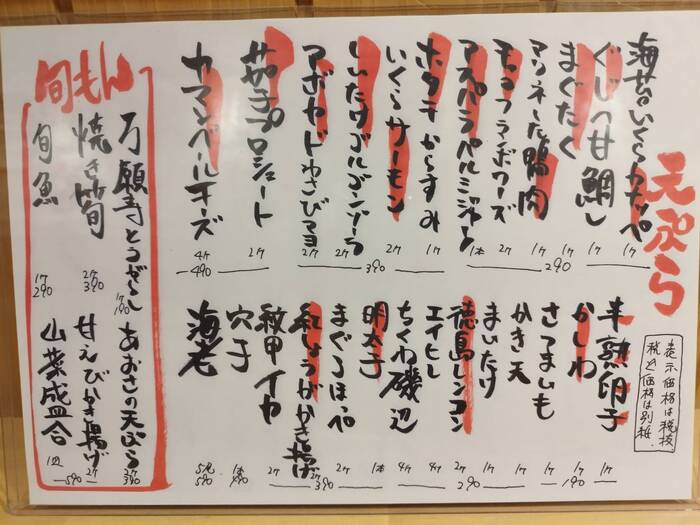 天ぷら
表示価格は税抜
税込価格は別紙
海苔いくらカナッペ 1ヶ
ぐじ〈甘鯛〉 1ヶ
まぐたく 1ヶ
マリネした鴨肉 1ヶ
モッフランボワーズ 2ヶ
アスパラパルミジャーノ 1本
290
ホタテからすみ 1ヶ
いくらサーモン 2ヶ
しいたけゴルゴンゾーラ 2ヶ
アボカドわさびマヨ 2ヶ
390
茄子プロシュート 2ヶ
カマンベールチーズ 4ヶ
490
半熟卵子 1ヶ
かしわ 1ヶ
さつまいも 1ヶ
190
かき天 1ヶ
まいたけ 1ヶ
徳島レンコン 2ヶ
290
エイヒレ 4ヶ
ちくわ磯辺 4ヶ
明太子 1本
まぐろほっぺ 2ヶ
紅しょうがかき揚げ 2ヶ
390
紋甲イカ 2ヶ
穴子 1本
490
海老 5尾
590
旬もん
万願寺とうがらし 1ヶ 190
焼き筍 2ヶ 390
旬魚 1ヶ 290
あおさの天ぷら 2ヶ 390
甘えびかき揚げ 2ヶ
山菜盛合 1皿
590